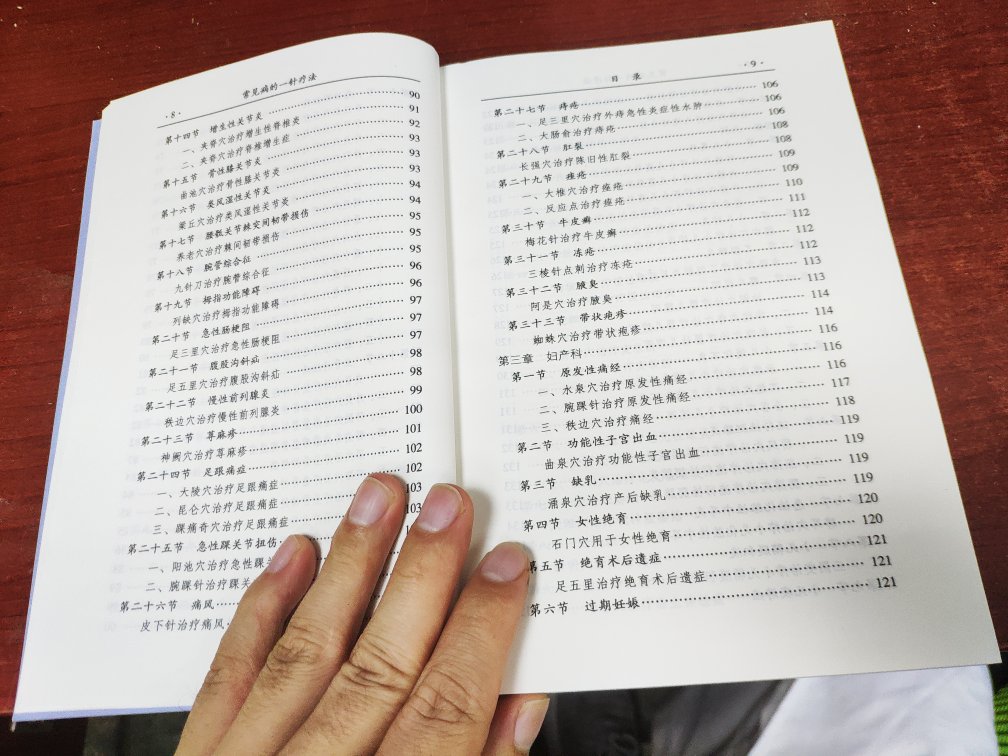 ·8· 常见病的一针疗法
第十四节 增生性关节炎 90
一、夹脊穴治疗增生性脊椎炎 90
二、夹脊穴治疗脊椎增生症 91
第十五节 骨性膝关节炎 92
曲池穴治疗骨性膝关节炎 93
第十六节 类风湿性关节炎 93
梁丘穴治疗类风湿性关节炎 94
第十七节 腰骶关节棘突间韧带损伤 94
养老穴治疗棘间韧带损伤 95
第十八节 腕管综合征 95
九针刀治疗腕管综合征 95
第十九节 拇指功能障碍 96
列缺穴治疗拇指功能障碍 96
第二十节 急性肠梗阻 97
足三里穴治疗急性肠梗阻 97
第二十一节 腹股沟斜疝 97
足五里穴治疗腹股沟斜疝 98
第二十二节 慢性前列腺炎 98
秩边穴治疗慢性前列腺炎 99
第二十三节 荨麻疹 100
神阙穴治疗荨麻疹 101
第二十四节 足跟痛症 102
一、大陵穴治疗足跟痛症 102
二、昆仑穴治疗足跟痛症 103
三、踝痛奇穴治疗足跟痛症 103
第二十五节 急性踝关节扭伤
一、阳池穴治疗急性踝关
二、腕踝针治疗踝关
第二十六节 痛风
皮下针治疗痛风
目录 ·9·
第二十七节 痔疮 106
一、足三里穴治疗外痔急性炎症性水肿 106
二、大肠俞治疗痔疮 106
第二十八节 肛裂 108
长强穴治疗陈旧性肛裂 108
第二十九节 痤疮 109
一、大椎穴治疗痤疮 109
二、反应点治疗痤疮 110
第三十节 牛皮癣 111
梅花针治疗牛皮癣 112
第三十一节 冻疮 112
三棱针点刺治疗冻疮 112
第三十二节 腋臭 113
阿是穴治疗腋臭 113
第三十三节 带状疱疹 114
蜘蛛穴治疗带状疱疹 114
第三章 妇产科 116
第一节 原发性痛经 116
一、水泉穴治疗原发性痛经 116
二、腕踝针治疗原发性痛经 117
三、秩边穴治疗痛经 118
第二节 功能性子宫出血 119
曲泉穴治疗功能性子宫出血 119
第三节 缺乳 119
涌泉穴治疗产后缺乳 119
第四节 女性绝育 120
石门穴用于女性绝育 120
第五节 绝育术后遗症 121
足五里治疗绝育术后遗症 121
第六节 过期妊娠 121